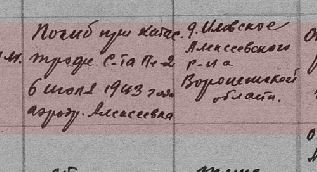 Погиб при катас-
трофе с-та Пе-2
6 июля 1943 года
аэродр. Алексеевка
д. Иловское
Алексеевского
р-на
Воронежской
области.